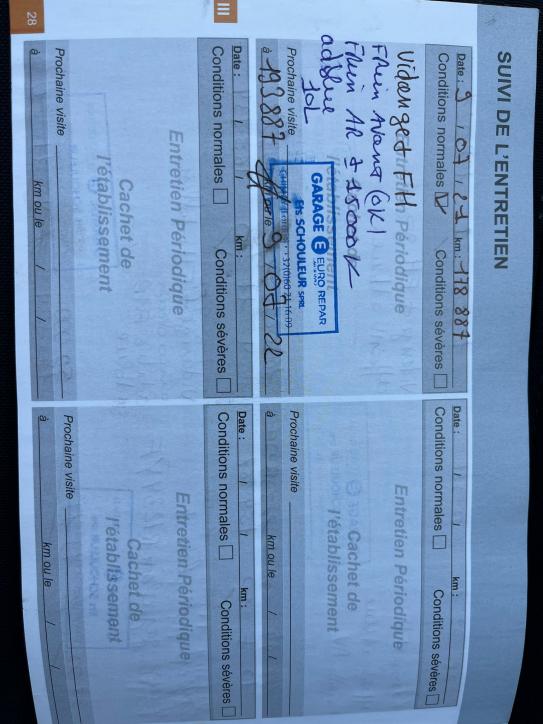 SUIVI DE L'ENTRETIEN
Date : 9 / 07 / 21 km : 178 887
Conditions normales Conditions sévères
Entretien Périodique
Vidanges + FH
Frein Avant (OK)
Frein AR ± 15000 K
adblue
10L
GARAGE EURO REPAR
Ets SCHOULEUR SPRL
Prochaine visite
à 193 887 km ou le 9 / 07 / 22
Date : / / km :
Conditions normales Conditions sévères
Entretien Périodique
Cachet de
l'établissement
Prochaine visite
à km ou le / /
III
Date : / / km :
Conditions normales Conditions sévères
Entretien Périodique
Cachet de
l'établissement
Prochaine visite
à km ou le / /
Date : / / km :
Conditions normales Conditions sévères
Entretien Périodique
Cachet de
l'établissement
Prochaine visite
à km ou le / /
28